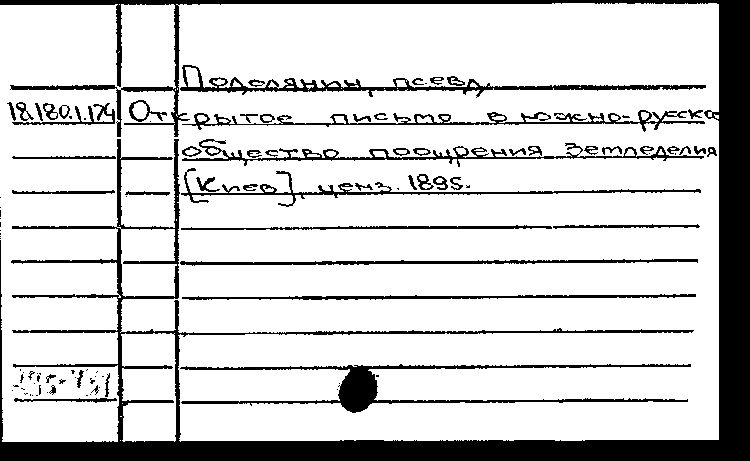 Подолянин, псевд.
18.180.1.174 Открытое письмо в южно-русско
общество поощрения земледелия
[Киев], ценз. 1895.